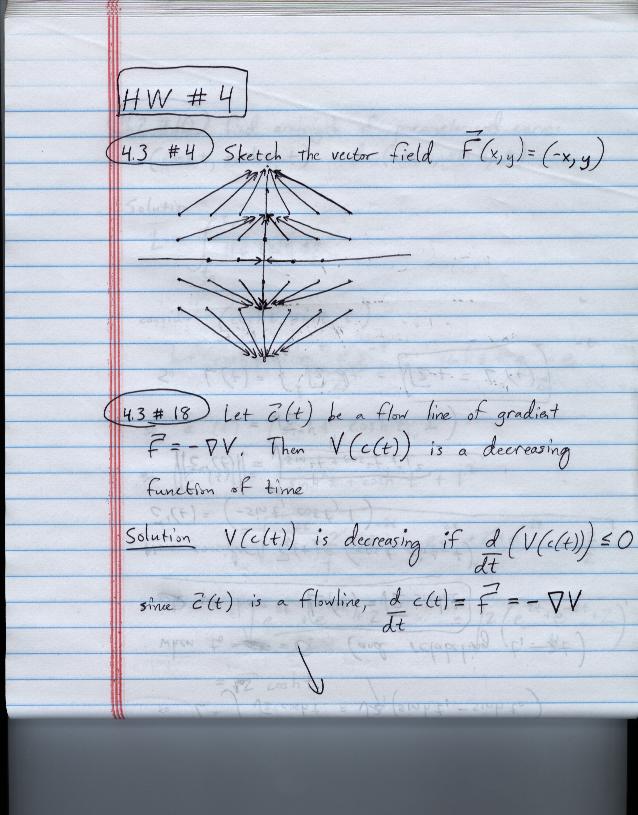 HW # 4
4.3 #4 Sketch the vector field F⃗(x,y)=(-x,y)
4.3 # 18 Let c⃗(t) be a flow line of gradient
F⃗ = -∇V. Then V(c(t)) is a decreasing
function of time
Solution V(c(t)) is decreasing if d/dt (V(c(t))) ≤ 0
since c⃗(t) is a flowline, d/dt c(t) = F⃗ = -∇V